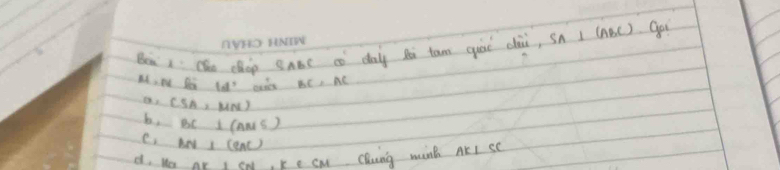 MINH CHÂU
Bài 1: Cho chóp SABC có đáy là tam giác đều, SA ⊥ (ABC). Gọi
M, N là tđ' của BC, AC
a, (SA, MN)
b, BC ⊥ (AMS)
c, BN ⊥ (SAC)
d, AK ⊥ SM, K ∈ SM. Chứng minh AK ⊥ SC